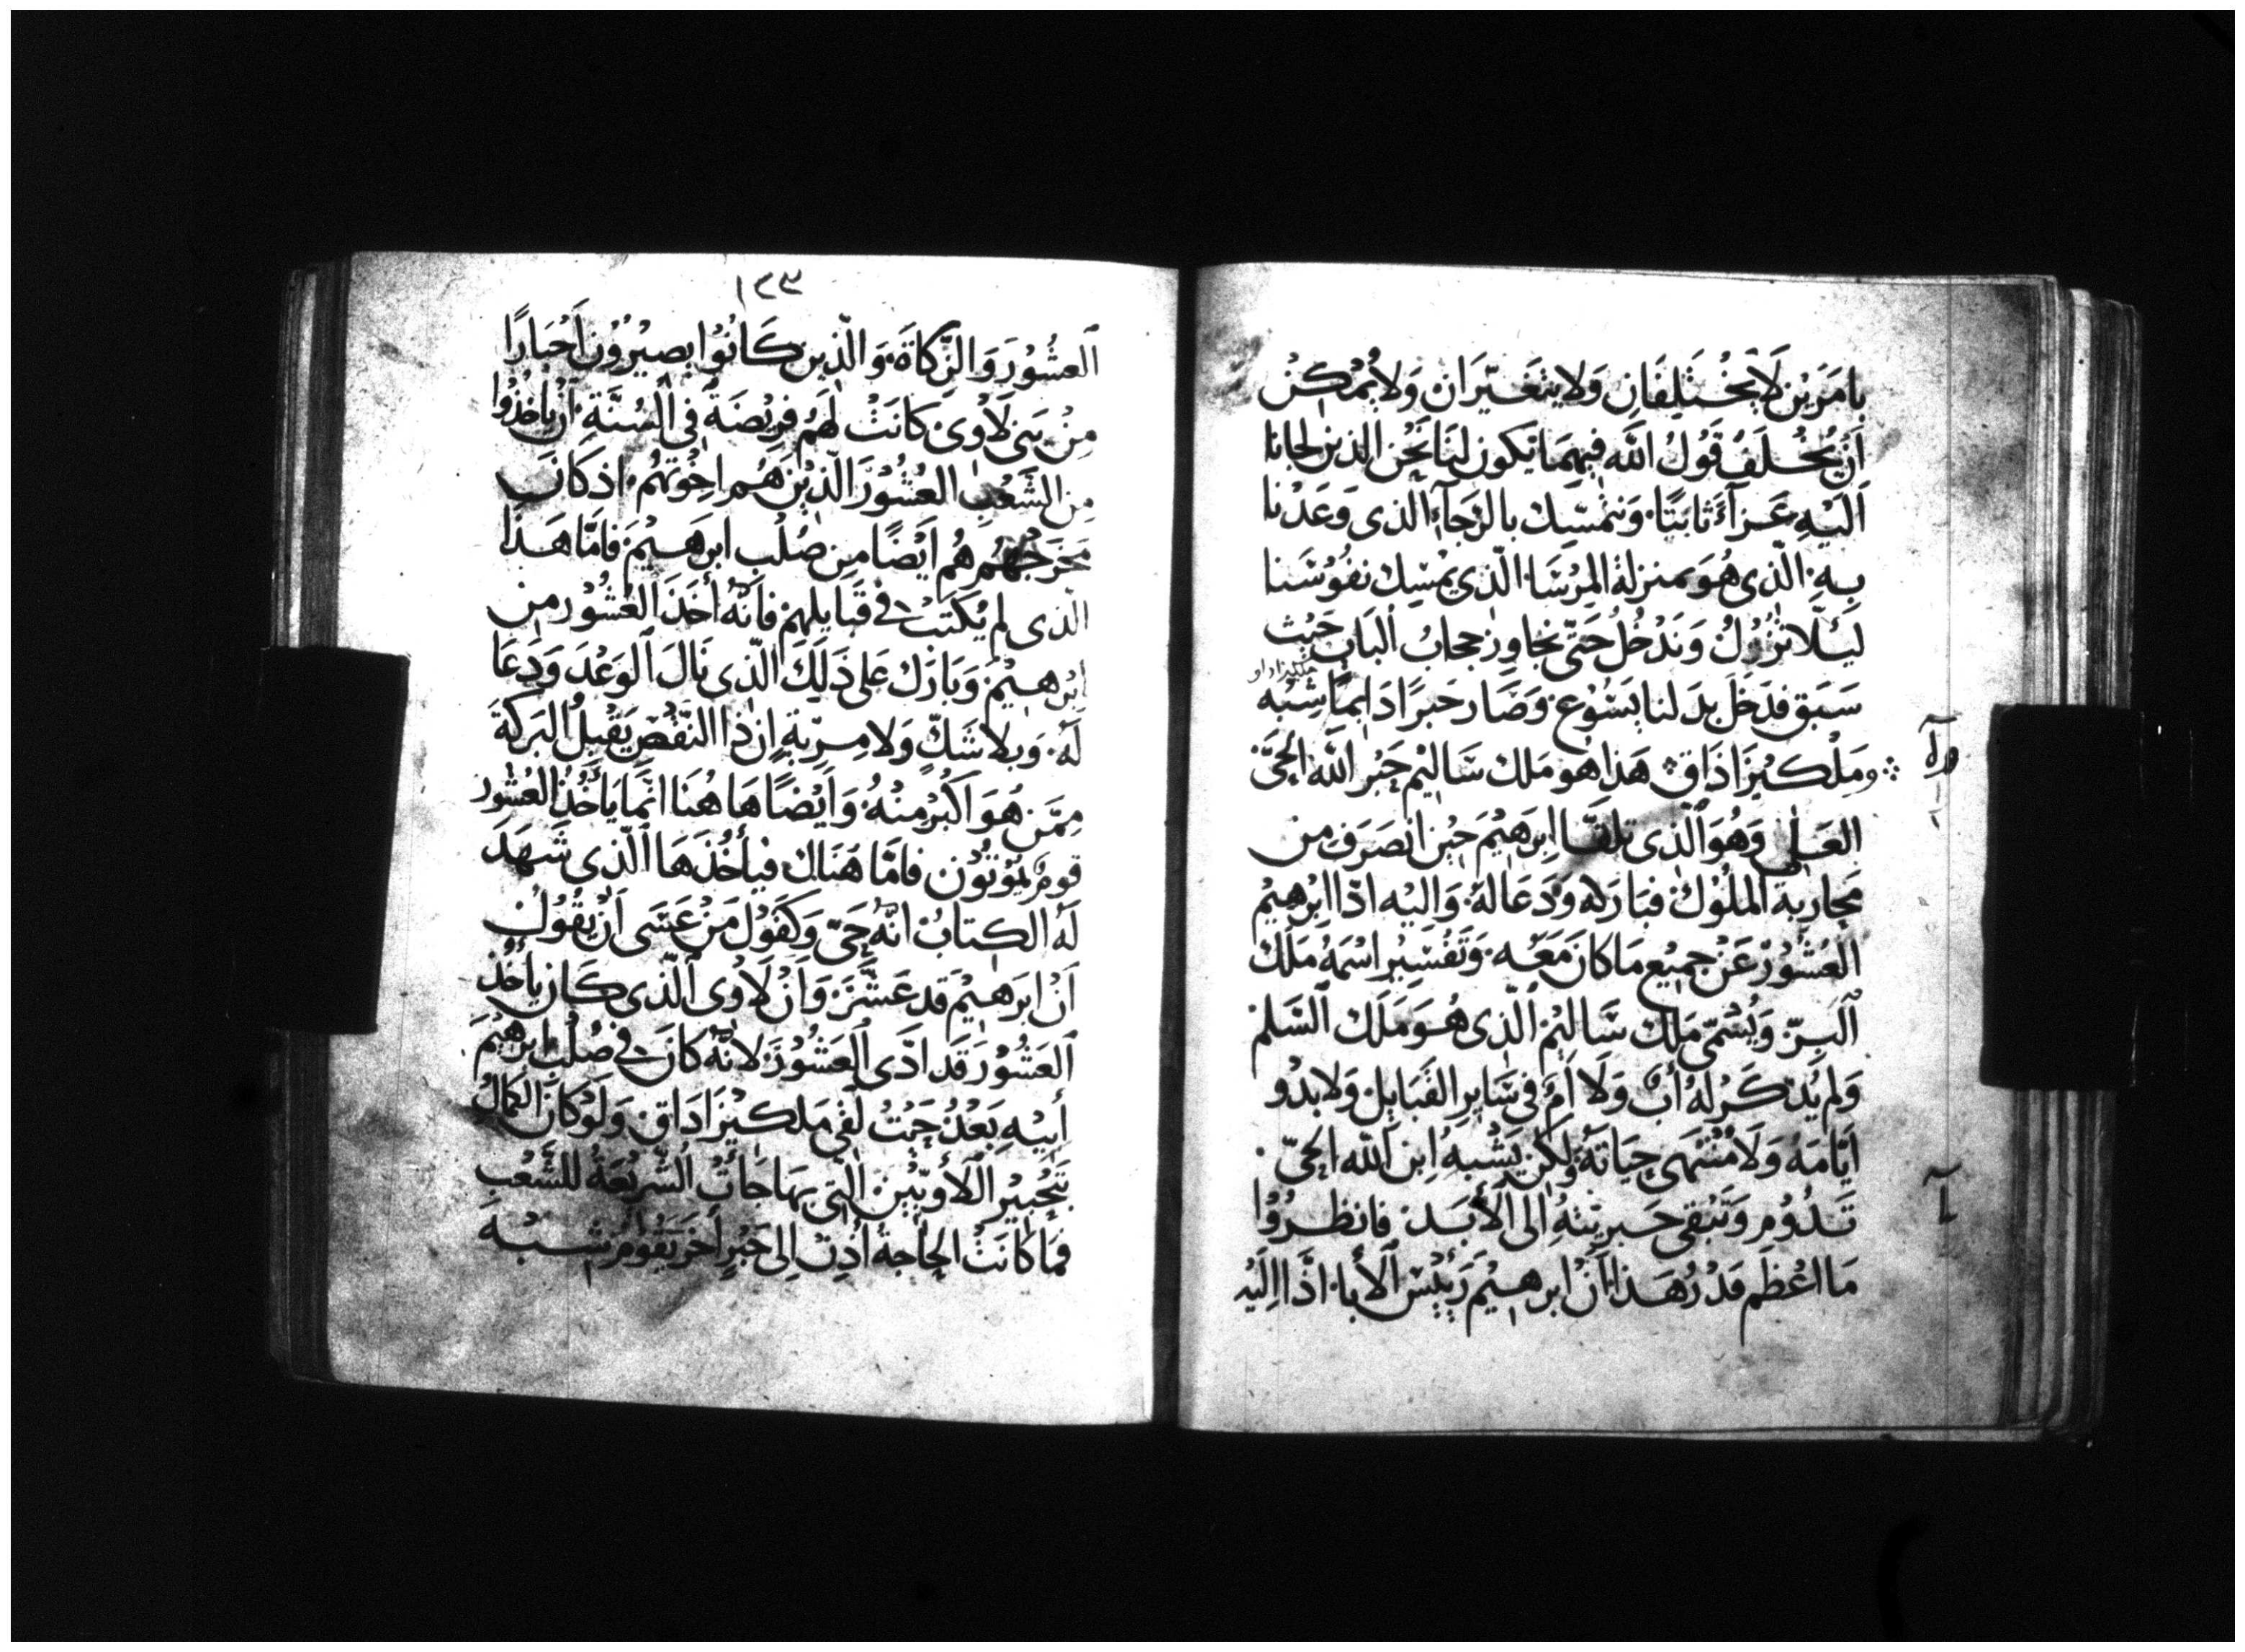 بِامرَين لَا يَخْتَلِفَانِ وَلا يتغيّرَان وَلا يُمْكِنُ
اَنْ يُخْلَفَ قَوْلُ اللّه فِيهِمَا تكون لَنَا نَحْنُ الذين لجانا
اَليْهِ عَزَآءً ثابتًا وَنتمسّك بالرَجَآءِ الذى وَعَدْنا
بِهِ الّذى هُوَ بمنزلة المرْسَا الّذى يمْسِك نفُوسَنا
لِيَلّا تزُولُ وَندْخُلُ حَتّى نجاوِز حجابُ اَلباب حَيْث
سَبَق فدَخَلَ بدَلنا يَسُوُع وَصَار حَبرًا دَايمًا شِبْه
وَمَلكيزَاذَاق هَذا هُو مَلك سَاليْم حَبْر اللّه الحَىّ
العَلى وَهُوَ الّذى تلقّا ابرَهيْمَ حيْن انصَرَف من
مَحاربَة الملُوْك فبَارَله وَدَعَا لهُ وَاليْه ادّا اِبْرهيْم
العُشوُرْ عَنْ جميْع مَا كانَ مَعَه وَتَفْسِيرُ اسْمهُ مَلك
اَلبرّ وَيُسْمّى مَلك سَاليْم الّذى هُوَ مَلَك السَلم
وَلم يُذكَرْ لهُ أبٌ وَلَا أمٌ فى سَايرِ القَبَايِل وَلا بدْو
اَيّامَهُ وَلَا مُنْتهَى حيَاتهُ وَلكن يُشْبهُ اِبن اللّه الحىّ
تَدُوُم وَتَبْقى حَبريتهِ اِلى الأَبَد فانظرُوُا
مَا اعْظَم قدْرُ هَذا اَنْ ابرهيْم رَئيْس اَلأبا ادَّا اِليْه
١٣٣
اَلعشُوْرَ وَالزَّكاةَ وَالّذين كَانُوْا يصيْرُوُن اَحْبَارًا
مِنْ بَنى لَاوى كانَتْ لهُم فرِيْضَةٌ فى السُنَّةِ اَنْ يَاخُذُوُا
مِن الشَعْبِ العُشُوْرَ الّذيْنَ هُم اخِوَتهُم اذ كَانَ
مَخرَجُهُم هُم اَيْضًا مِن صُلْبِ ابرَهيْمَ فامّا هَذا
الّذى لم يُكتَبْ فى قَبَايلِهمْ فانّهُ أخَذَ العُشُوْر من
اِبْرهيْمَ وَبَارَك عَلى ذَلِكَ الّذى نَالَ اَلوَعْدَ وَدَعَا
لَهُ وَبلا شَكّ وَلا مِريّةٍ اِن ذا النّقْص يَقْبلُ البَركةَ
مِمّن هُوَ اَكْبَرُ مِنْهُ وَايْضًا هَا هُنا انّمَا يَأخُذُ العُشُور
قومٌ يَمُوْتُوْن فامّا هُنَاك فيأخُذَهَا الّذى شَهدَ
لَهُ الكِتابُ انّهُ حَىّ وَكقَوْل مَنْ عَسَى اَنْ يقُوْلُ
اَنْ ابرَهيْمَ قد عَشَّرَ وَاَنْ لَاوى الّذى كَان يأخُذ
اَلعَشُوْرَ قَد ادَّى اَلعَشُوْرَ لانّهُ كانَ فى صُلْبِ ابرَهيْمَ
أَبيْهِ بَعْدُ حَيْثُ لَقى مَلكيْزَادَاق وَلَوْ كانَ الكَمَالُ
بتَحْبيْرِ اللأويّيْنَ الّتى بهَا جَأتْ الشّريْعَةُ للشَّعْبِ
فمَا كانتْ الحَاجة اُذِن اِلى حَبْرٍ أخَر يَقوُمُ شبْه